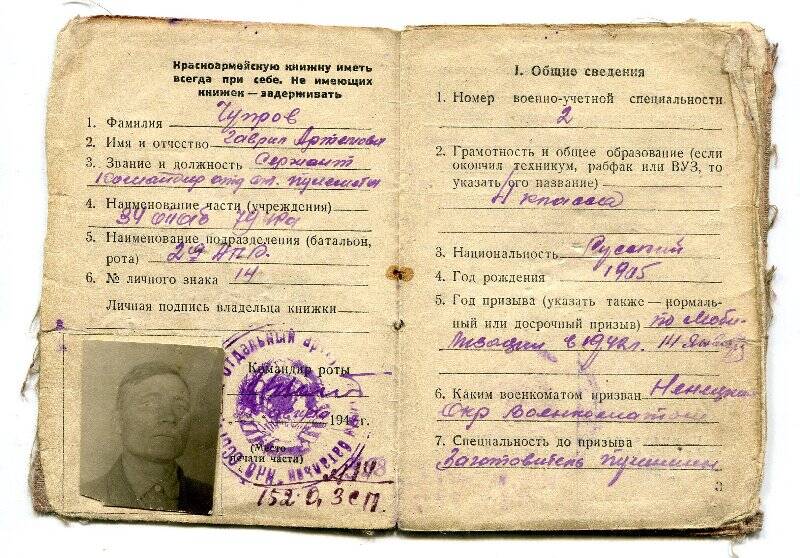 Красноармейскую книжку иметь
всегда при себе. Не имеющих
книжек — задерживать
1. Фамилия Чупров
2. Имя и отчество Гаврил Артемов
3. Звание и должность Сержант
Командир отд ст. пулемета
4. Наименование части (учреждения)
34
5. Наименование подразделения (батальон,
рота) 2ая
6. № личного знака 14
Личная подпись владельца книжки
Командир роты
194 г.
(Место
печати части)
152 О, З СП.
I. Общие сведения
1. Номер военно-учетной специальности
2
2. Грамотность и общее образование (если
окончил техникум, рабфак или ВУЗ, то
указать его название)
4 класса
3. Национальность Русский
4. Год рождения 1905
5. Год призыва (указать также — нормаль-
ный или досрочный призыв) по моби-
лизации в 1942г. 14 Января
6. Каким военкоматом призван Ненецким
Окр Военкоматом
7. Специальность до призыва
Заготовитель пушнины
3